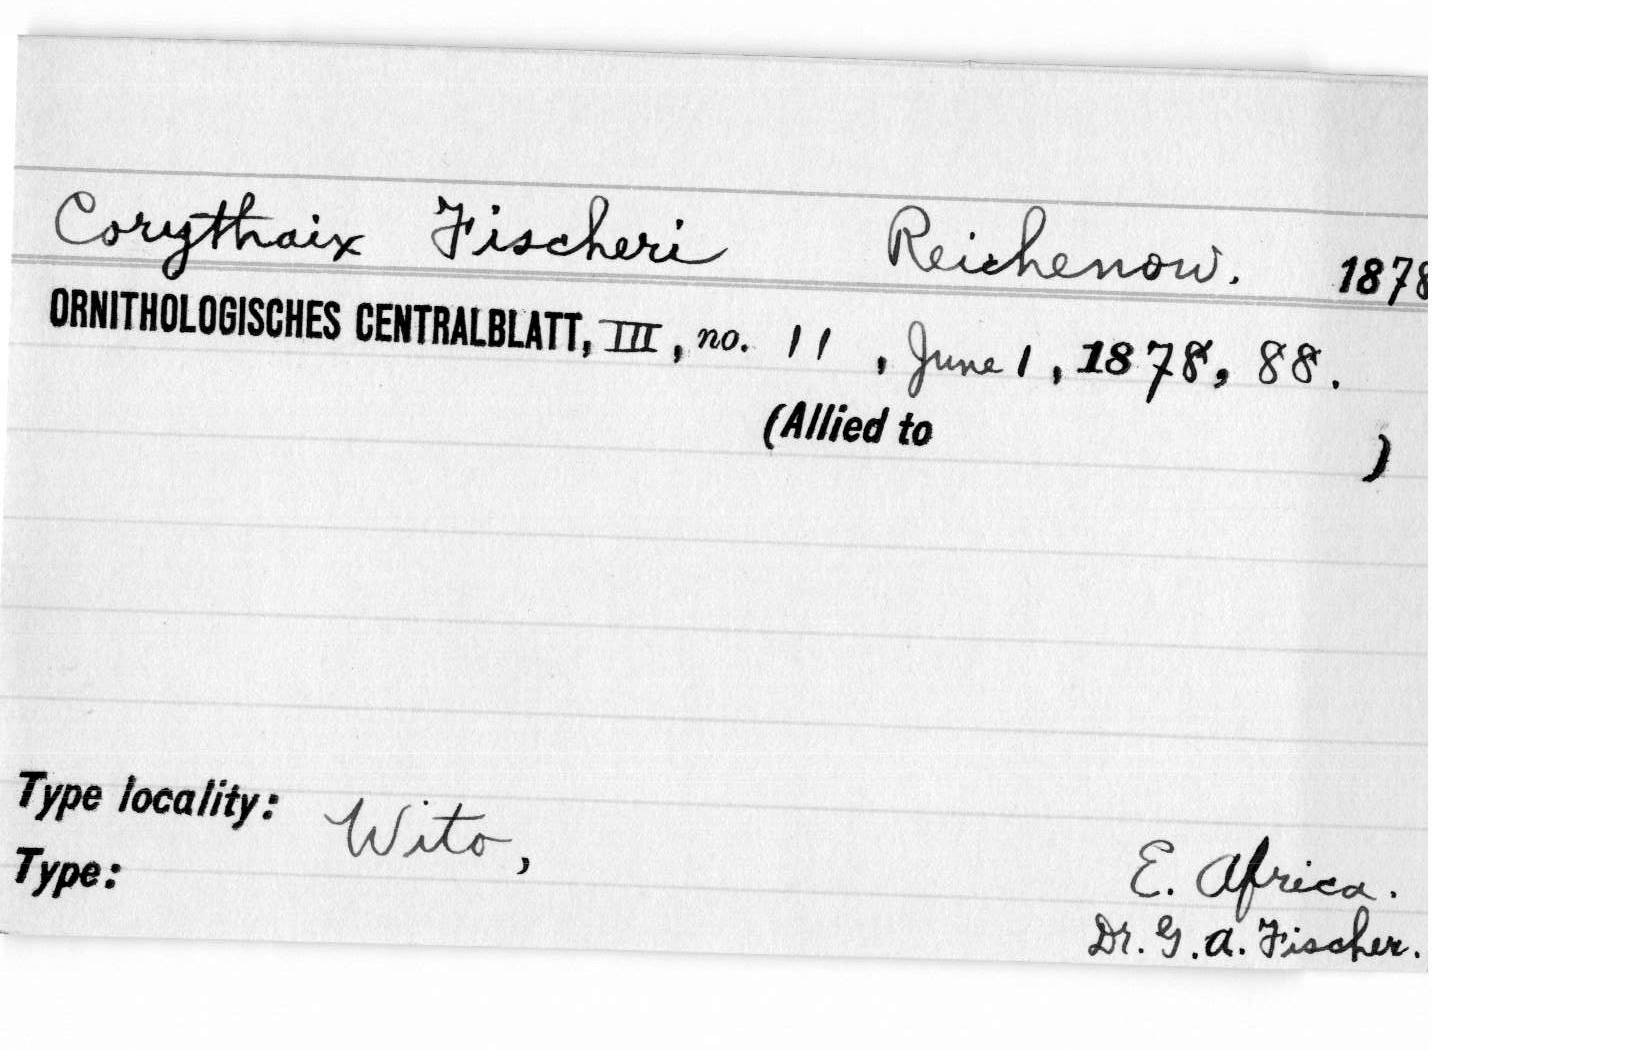 Corythaix Fischeri Reichenow. 1878
ORNITHOLOGISCHES CENTRALBLATT, III, no. 11, June 1, 1878, 88.
(Allied to )
Type locality: Wito, E. Africa.
Type: Dr. G. A. Fischer.